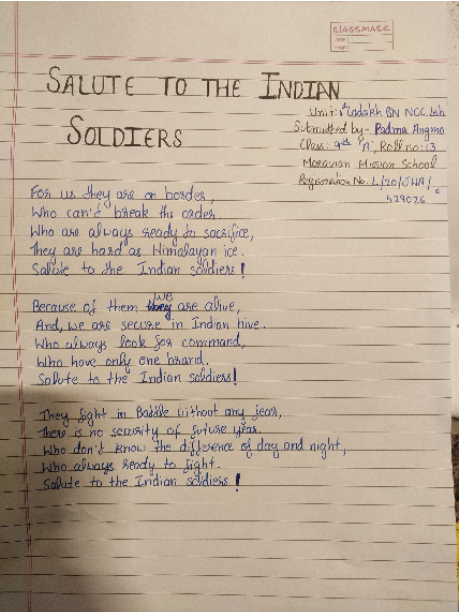 CLASSMATE
Date :
Page :
SALUTE TO THE INDIAN
SOLDIERS
Unit: Ladakh BN NCC Leh
Submitted by - Padma Angmo
Class: 9th 'A', Roll no: 13
Moravian Mission School
Registration No. L/20/JWA/
429026
For us they are on border,
Who can't break the order.
Who are always ready to sacrifice,
They are hard as Himalayan ice.
Salute to the Indian soldiers!
we
Because of them they are alive,
And, we are secure in Indian hive.
Who always look for command,
Who have only one brand.
Salute to the Indian soldiers!
They fight in Battle without any fear,
There is no security of future year.
Who don't know the difference of day and night,
Who always ready to fight.
Salute to the Indian soldiers!